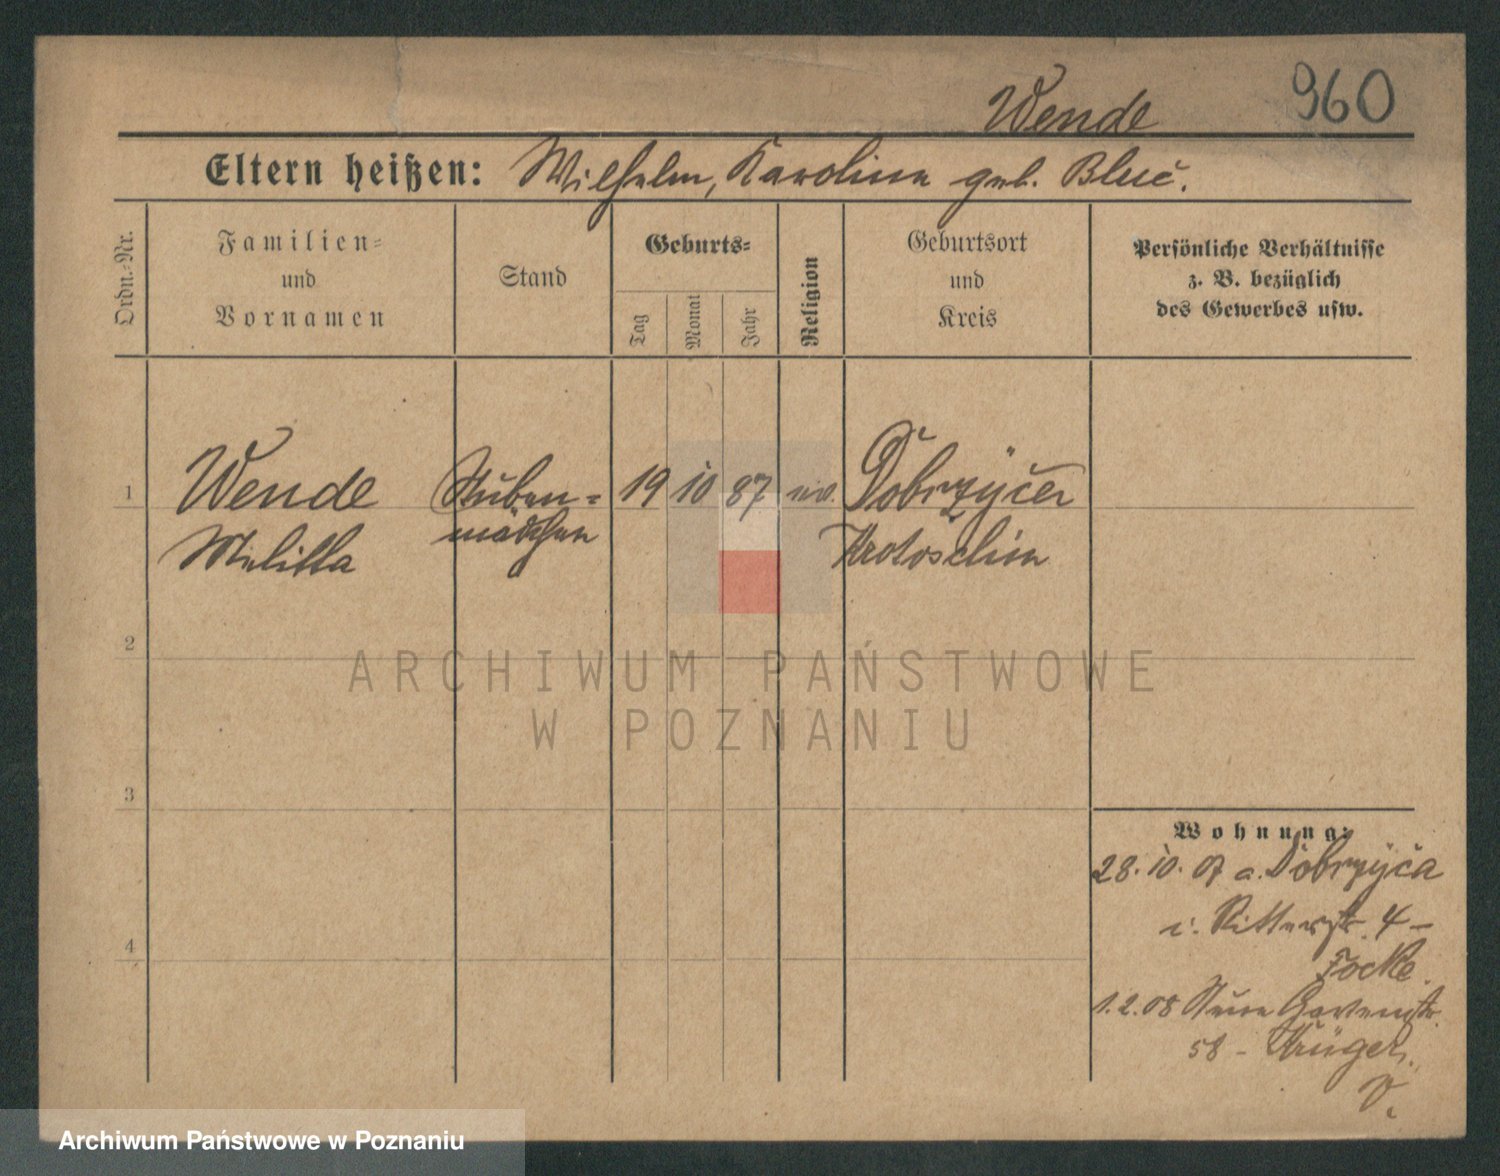 Wende 960
Eltern heißen: Wilhelm, Karoline geb.
Ordn.-Nr.
Familien-
und
Vornamen
Stand
Geburts-
Tag
Monat
Jahr
Religion
Geburtsort
und
Kreis
Persönliche Verhältnisse
z. B. bezüglich
des Gewerbes usw.
1 Wende Stuben- 19 10 87 ev.
Melitta mädchen Krotoschin
2
3
4
Wohnung:
28. 10. 07 a. Dobrzyca
i. Ritterstr. 4 -
1. 2. 08 Gartenstr.
58 - Krüger.
ARCHIWUM PAŃSTWOWE
W POZNANIU
Archiwum Państwowe w Poznaniu